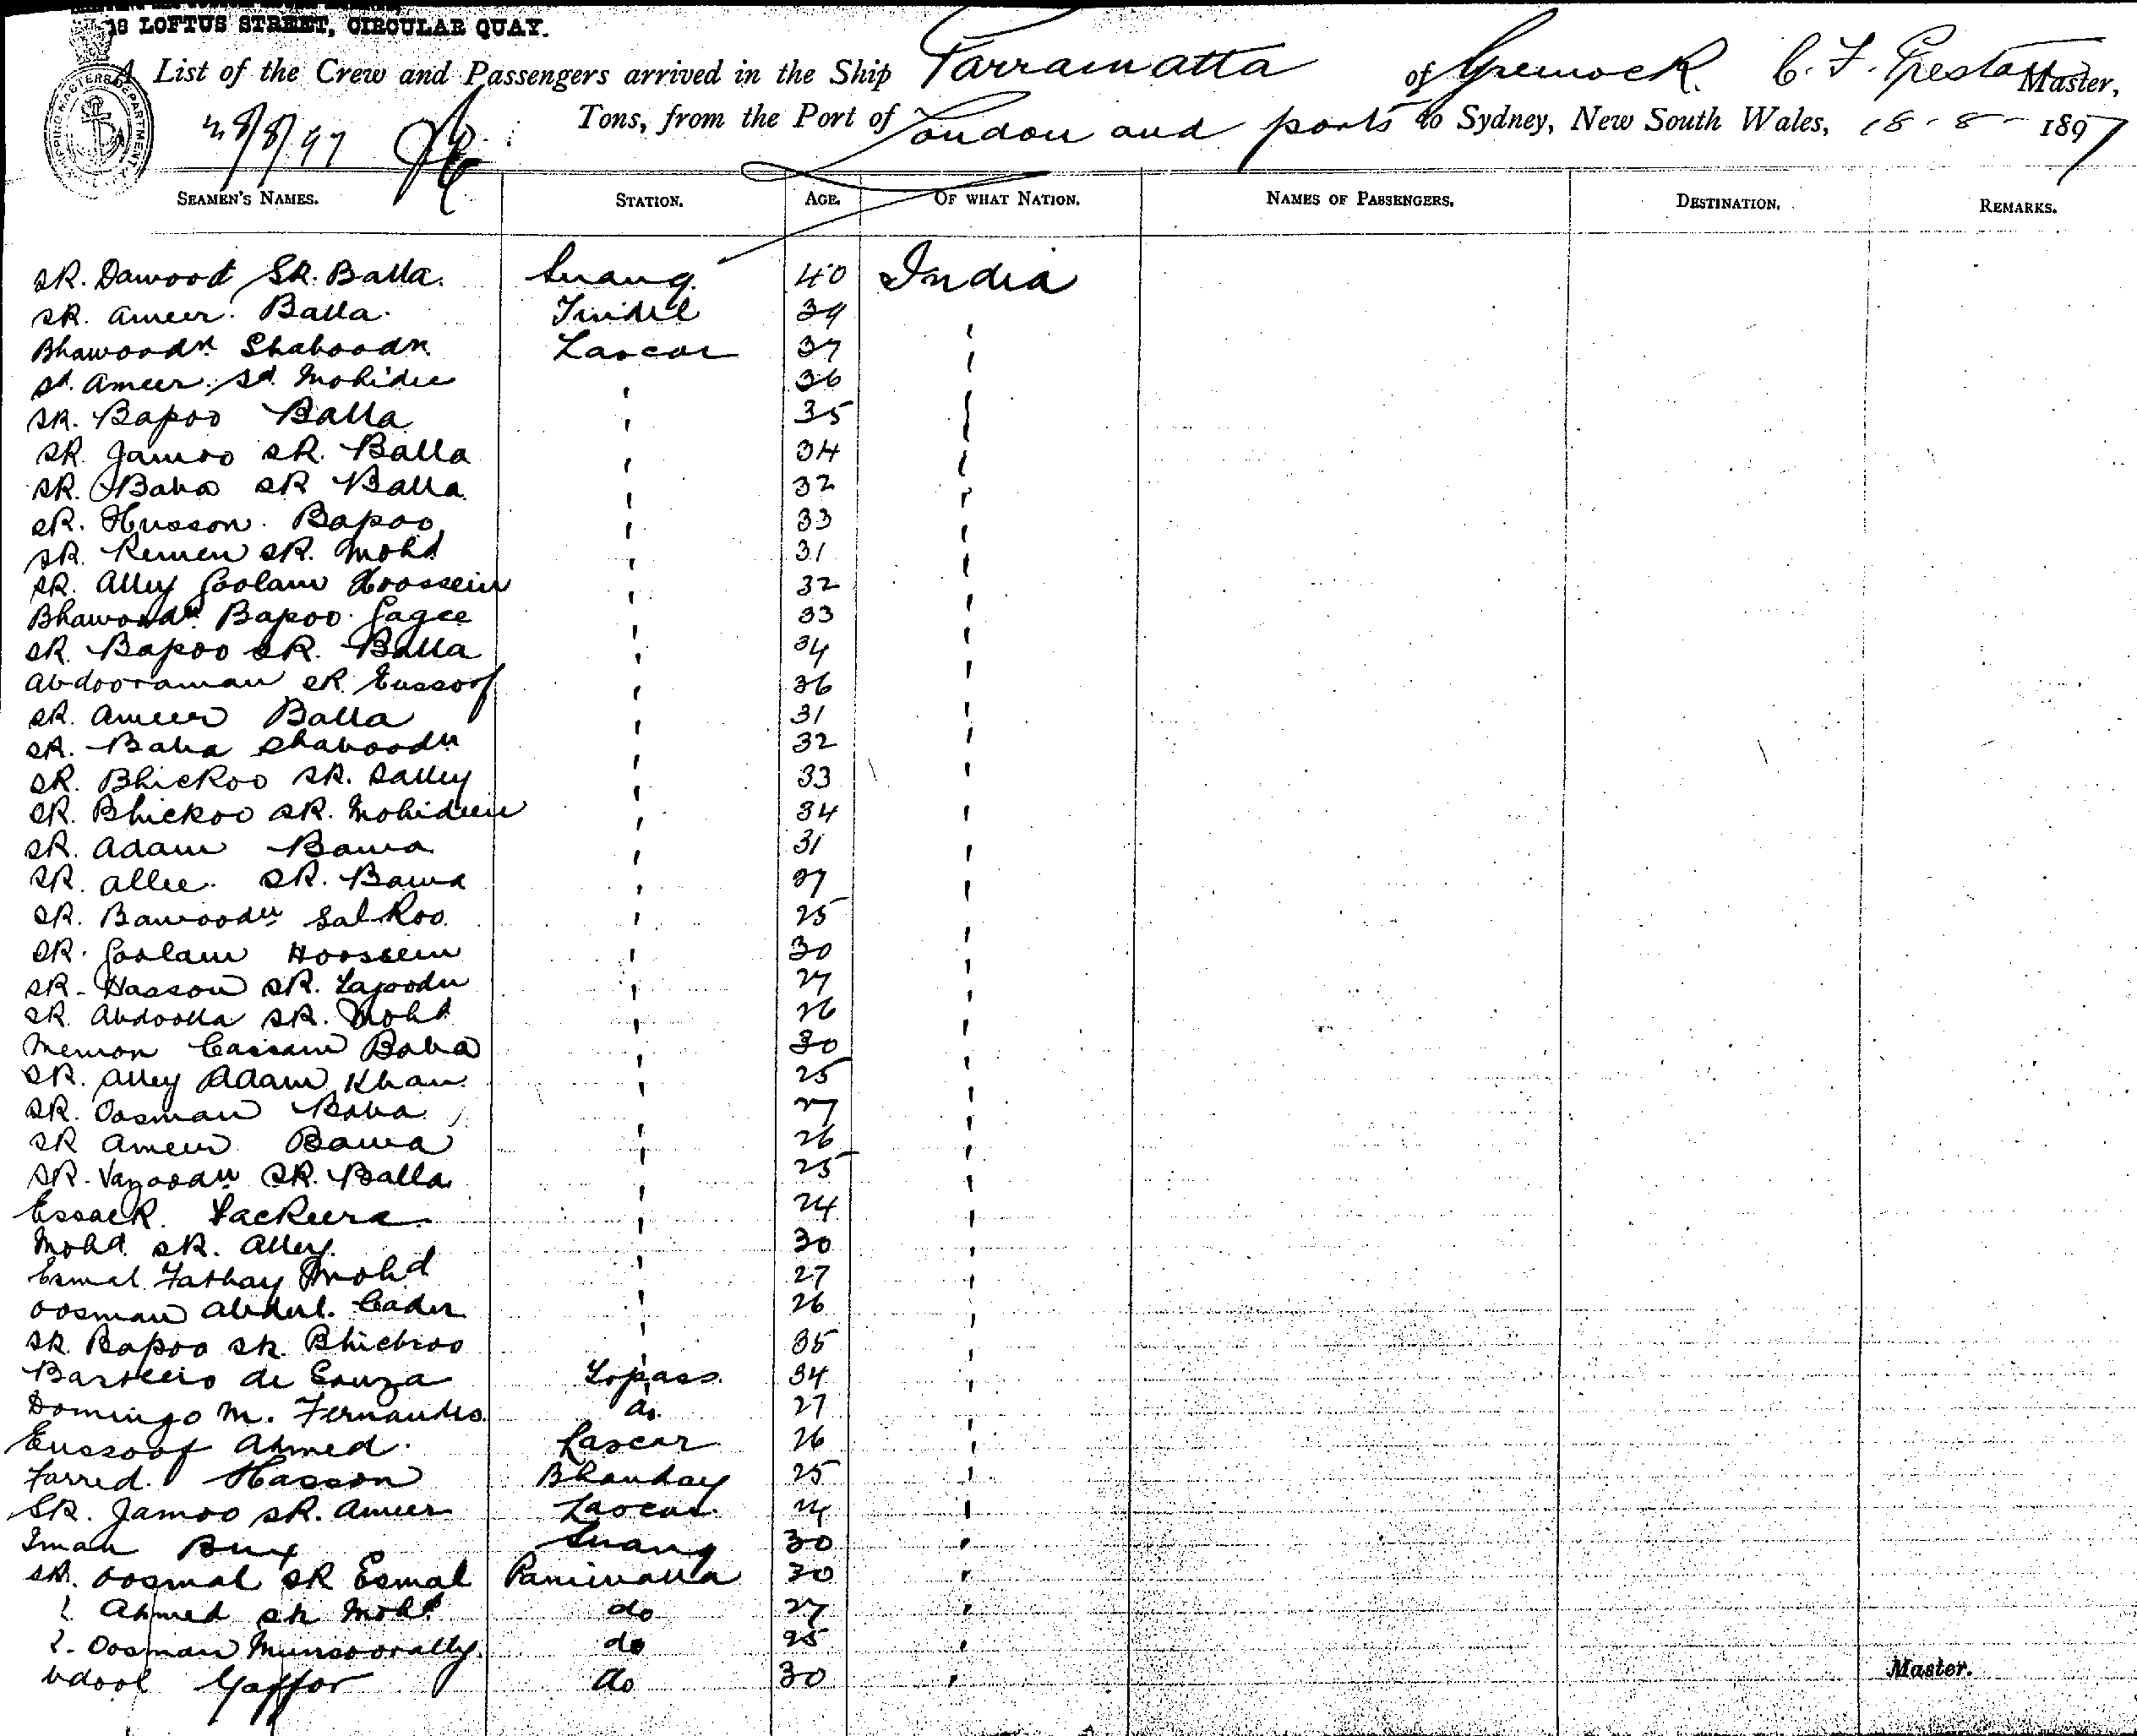 18 LOFTUS STREET, CIRCULAR QUAY.
A List of the Crew and Passengers arrived in the Ship Parramatta of Greenock. C. F. Preston Master,
Tons, from the Port of London and ports to Sydney, New South Wales, 18-8-1897
SHIPPING MASTERS DEPARTMENT
SEAMEN'S NAMES. STATION. AGE. OF WHAT NATION. NAMES OF PASSENGERS. DESTINATION. REMARKS.
SK. Dawood SK. Balla. Suang. 40 India
SK. Ameer. Balla. Tindel 39 "
Bhawoodn Shaboodn Lascar 37 "
Sd. Ameer. Sd. Mohidee " 36 "
SK. Bapoo Balla " 35 "
SK. Jamoo SK. Balla " 34 "
SK. Baba SK Balla " 32 "
SK. Husson. Bapoo " 33 "
SK. Remen SK. Mohd " 31 "
SK. Alley Goolam Hoossein " 32 "
Bhawoodn Bapoo Gagee " 33 "
SK. Bapoo SK. Balla " 34 "
Abdooraman SK. Eussoof " 36 "
SK. Ameer Balla " 31 "
SK. Baba Shaboodn " 32 "
SK. Bhickoo SK. Salley " 33 "
SK. Bhickoo SK. Mohideen " 34 "
SK. Adam Bawa " 31 "
SK. Allee. SK. Bawa " 37 "
SK. Bawoodn Salkoo. " 25 "
SK. Goolam Hoossein " 30 "
SK. Hasson SK. Lajoodn " 27 "
SK. Abdoolla SK. Mohd " 26 "
Memon Cassam Baba " 30 "
SK. Alley Adam Khan " 25 "
SK. Oosman Baba " 27 "
SK Ameer Bawa " 26 "
SK. Vazoodn SK. Balla " 25 "
Essack. Packeera. " 24 "
Mohd. SK. Alley. " 30 "
Esmal Fathay Mohd " 27 "
Oosman Abdul. Cader " 26 "
SK. Bapoo SK. Bhickoo " 35 "
de Souza Topass. 34 "
Domingo M. Fernandes. do. 27 "
Eussoof Ahmed. Lascar 26 "
Farred. Hasson Bhanday 25 "
SK. Jamoo SK. Ameer Lascar. 24 "
Iman Bux Suang 30 "
SK. Oosmal SK Esmal Paniwalla 30 "
Ahmed SK Mohd do 27 "
Oosman Munsoorally. do 25 "
bdool Gaffor do 30 "
Master.